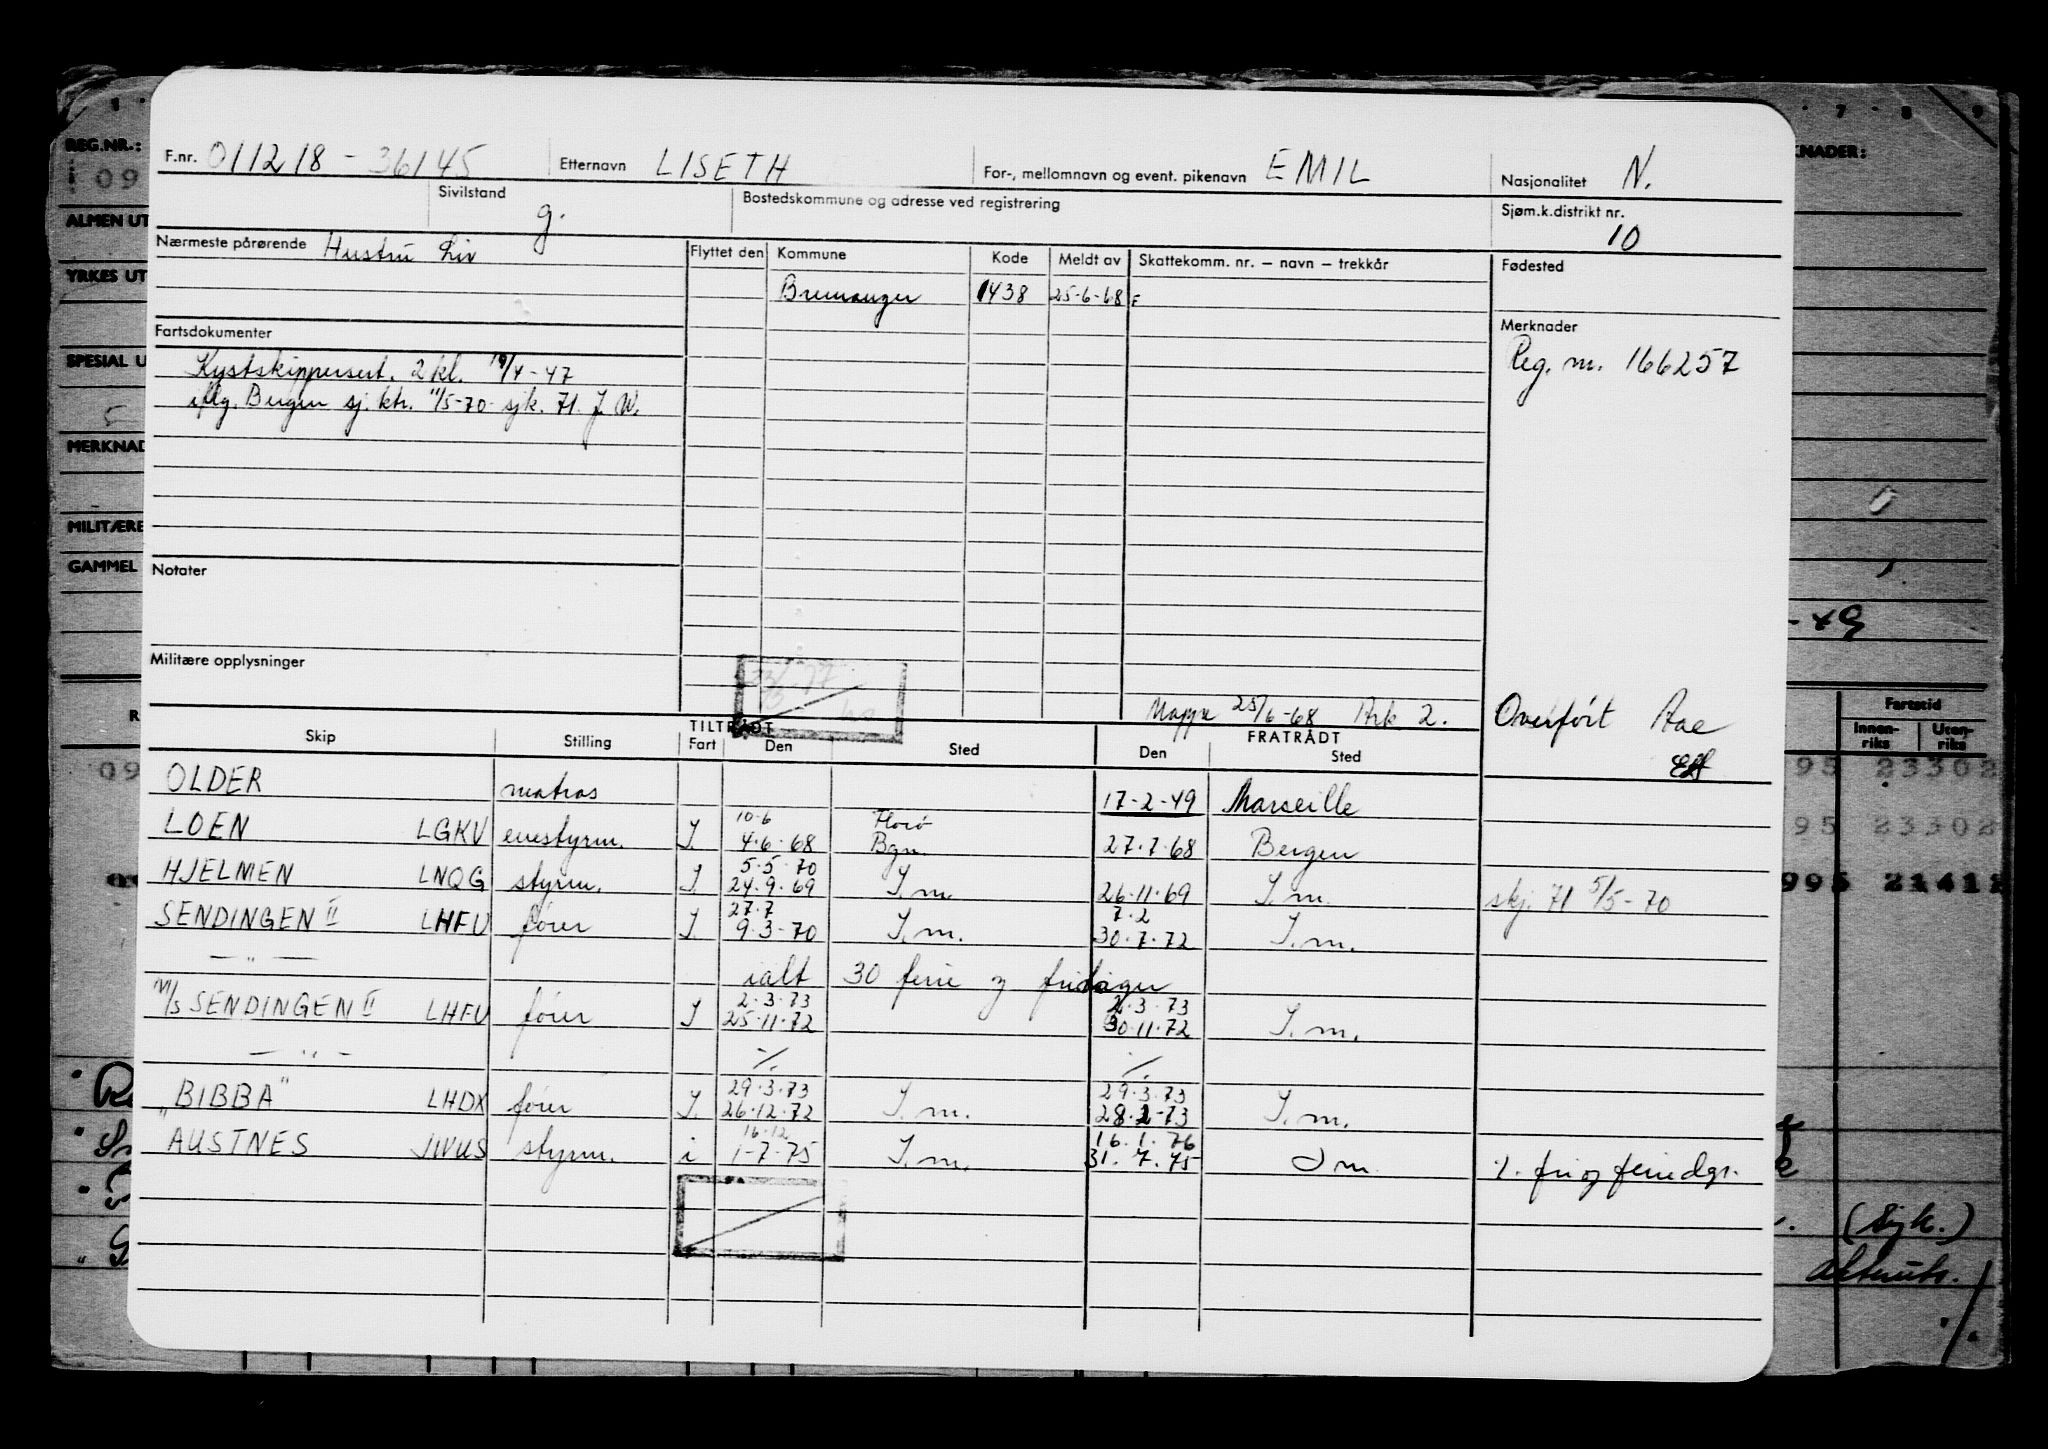 REG.NR.:
09
ALMEN UT
YRKES UT
SPESIAL U
5
MERKNAD
MILITÆRE
GAMMEL
7 8 9
KNADER:
F.nr. 011218-36145 Etternavn LISETH For-, mellomnavn og event. pikenavn EMIL Nasjonalitet N.
Sivilstand g. Bostedskommune og adresse ved registrering Sjøm.k.distrikt nr. 10
Nærmeste pårørende Hustru Liv Flyttet den Kommune Kode Meldt av Skattekomm. nr. – navn – trekkår Fødested
Bremanger 1438 25-6-68 F
Fartsdokumenter Merknader
Kystskippersert. 2 kl. 19/4-47 Reg. nr. 166257
iflg. Bergen sj. ktr. 11/5-70 sjk. 71. J.W.
Notater
Militære opplysninger
Mappe 25/6-68 Ark 2. Overført Aae
Skip Stilling TILTRÅDT Fart Den Sted FRATRÅDT Den Sted
OLDER matros 17-2-49 Marseille
10-6 Florø
LOEN LGKV enestyrm. I. 4.6.68 Bgn. 27.7.68 Bergen
5.5.70
HJELMEN LNQG styrm. I. 24.9.69 I.m. 26.11.69 I.m. skj. 71 5/5-70
27.7 7.2
SENDINGEN II LHFU fører I. 9.3-70 I.m. 30.7.72 I.m.
— „ — ialt 30 ferie og fridager
2.3.73 2.3.73
M/S SENDINGEN II LHFU fører I 25.11.72 30.11.72 I.m.
— „ — -/. -/.
29.3.73 29.3.73
"BIBBA" LHDX fører I. 26.12.72 I.m. 28.2-73 I.m.
16.12 16.1.76
"AUSTNES JWUS styrm. i 1-7-75 I.m. 31.7.75 I m. ./. fri og feriedgr.
Fartstid
Innen-riks Uten-riks
09 95 23302
95 23302
995 21412
(sjk.)